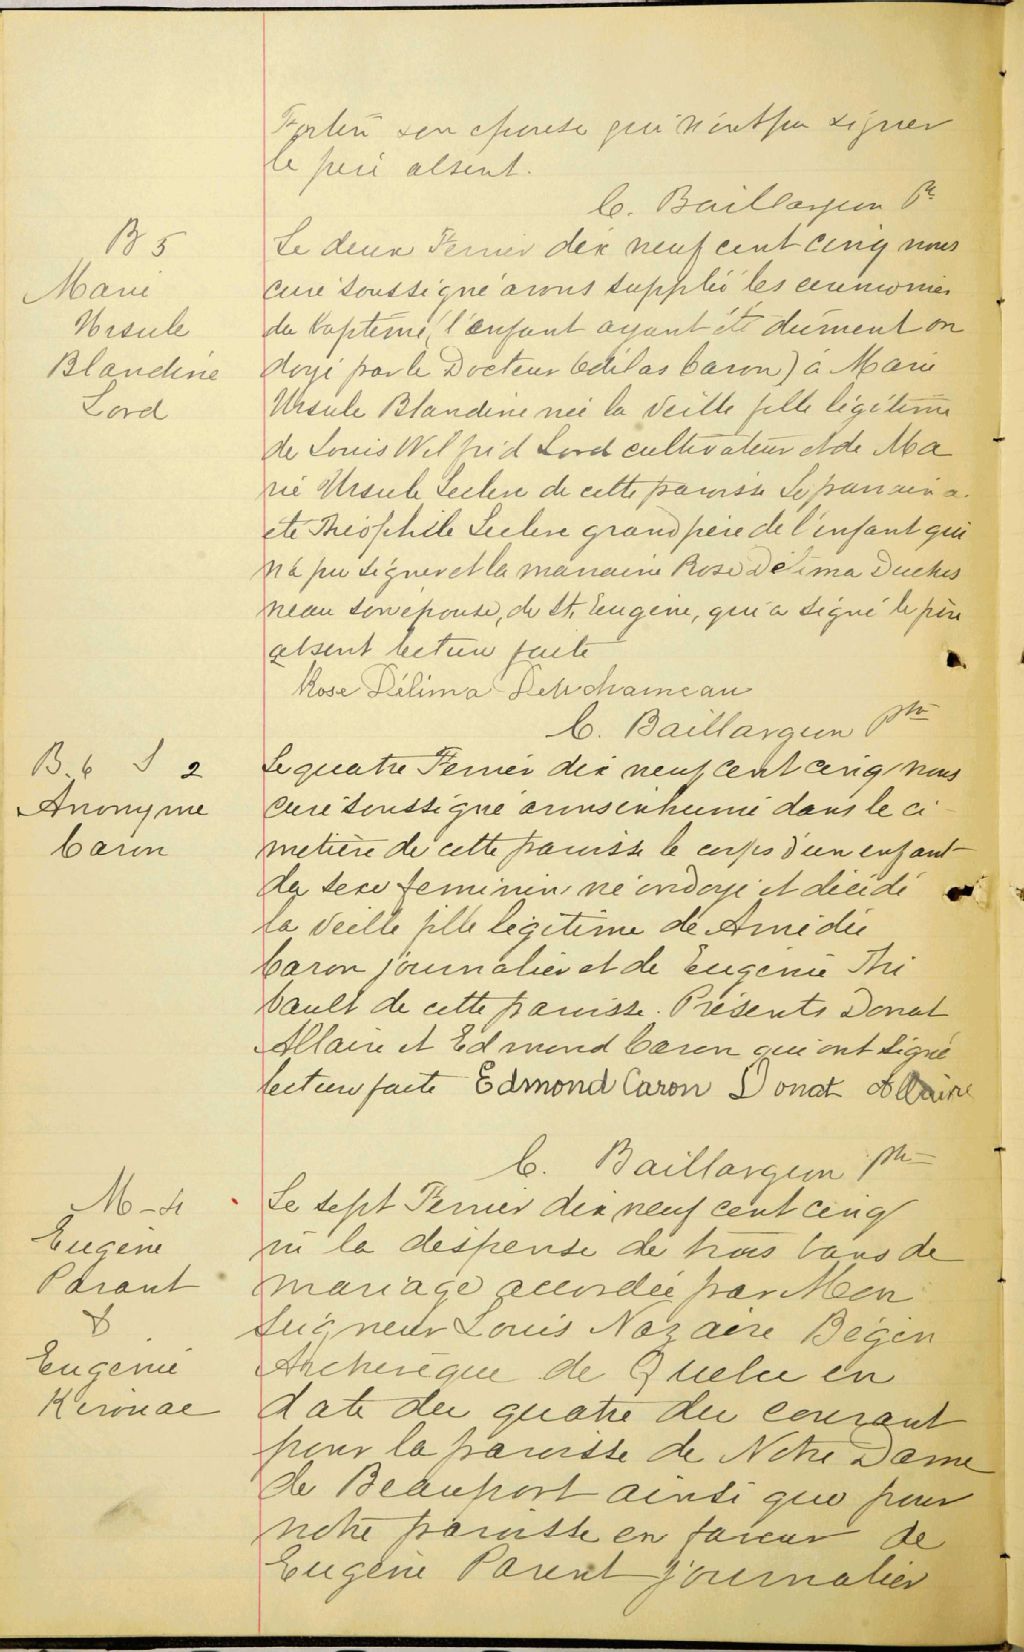 Fortin son épouse qui n'ont pu signer
le père absent.
C. Baillargeon Ptre
B 5
Marie
Ursule
Blandine
Lord
Le deux Fevrier dix neuf cent cinq nous
curé soussigné avons supplée les ceremonies
du baptême, (l'enfant ayant été dument on
doyé par le Docteur Odilas Caron) à Marie
Ursule Blandine née la veille fille légitime
de Louis Wilfrid Lord cultivateur et de Ma
rie Ursule Leclerc de cette paroisse Le parrain a
été Théophile Leclerc grand père de l'enfant qui
n'a pu signer et la marraine Rose Délima Duches
neau son épouse, de St. Eugène, qui a signé le père
absent lecture faite
Rose Délima
C. Baillargeon Ptre
B. 6 S 2
Anonyme
Caron
Le quatre Fevrier dix neuf cent cinq nous
curé soussigné avons inhumé dans le ci
metière de cette paroisse le corps d'un enfant
du sexe feminin né ondoyé et décédé
la veille fille légitime de Amédée
Caron journalier et de Eugénie Thi
bault de cette paroisse. Présents Donat
Allaire et Edmond Caron qui ont signé
lecture faite Edmond Caron Donat Allaire
C. Baillargeon Ptre
M-4
Eugène
Parant
&
Eugénie
Kirouac
Le sept Fevrier dix neuf cent cinq
vu la dispense de trois bans de
mariage accordée par Mon
seigneur Louis Nazaire Bégin
Archevêque de Québec en
date du quatre du courant
pour la paroisse de Notre Dame
de Beauport ainsi que pour
notre paroisse en faveur de
Eugène Parent journalier